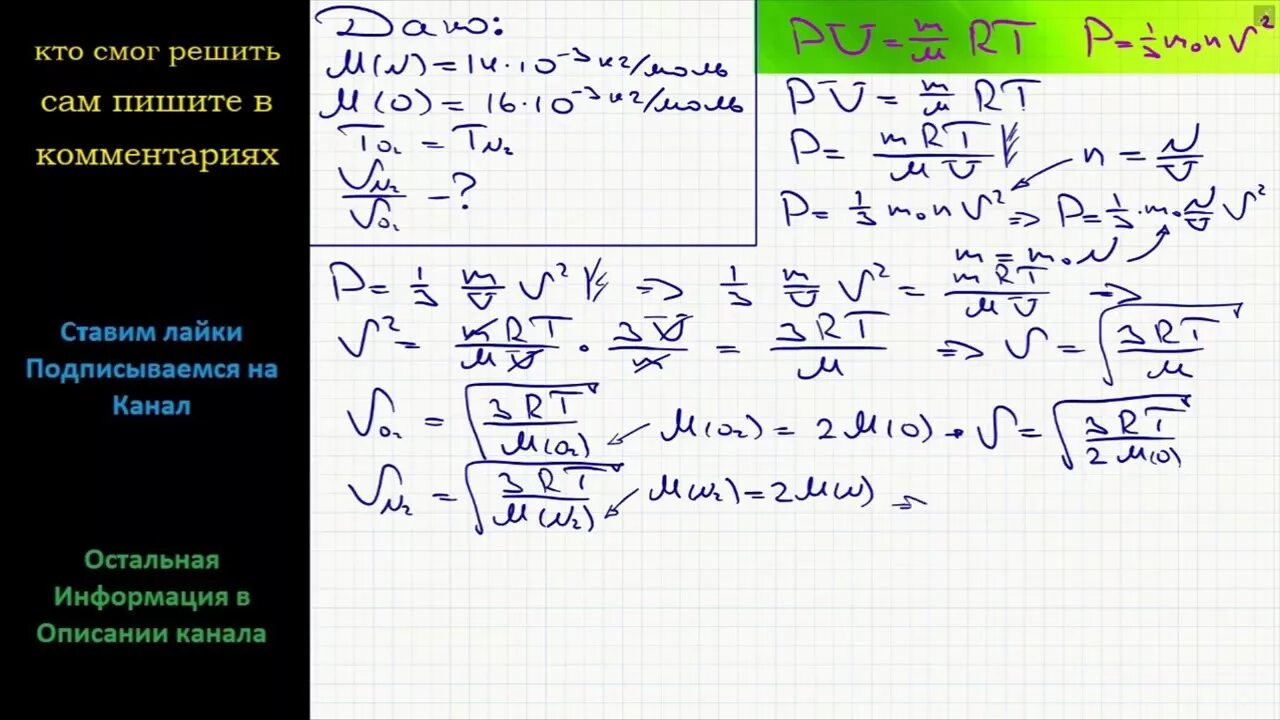 кто смог решить
сам пишите в
комментариях
Ставим лайки
Подписываемся на
Канал
Остальная
Информация в
Описании канала
Дано:
M(N) = 14·10⁻³ кг/моль
M(O) = 16·10⁻³ кг/моль
T_O₂ = T_N₂
V_N₂/V_O₂ - ?
PV = m/M RT P = 1/3 m₀nV²
PV = m/M RT
P = mRT/MV n = N/V
P = 1/3 m₀nV² => P = 1/3·m₀·N/V V²
m = m₀N
P = 1/3 m/V V² => 1/3 m/V V² = mRT/MV =>
V² = mRT/MV · 3V/m = 3RT/M => V = √(3RT/M)
V_O₂ = √(3RT/M(O₂)) M(O₂) = 2M(O) → V = √(3RT/2M(O))
V_N₂ = √(3RT/M(N₂)) M(N₂) = 2M(N) =>